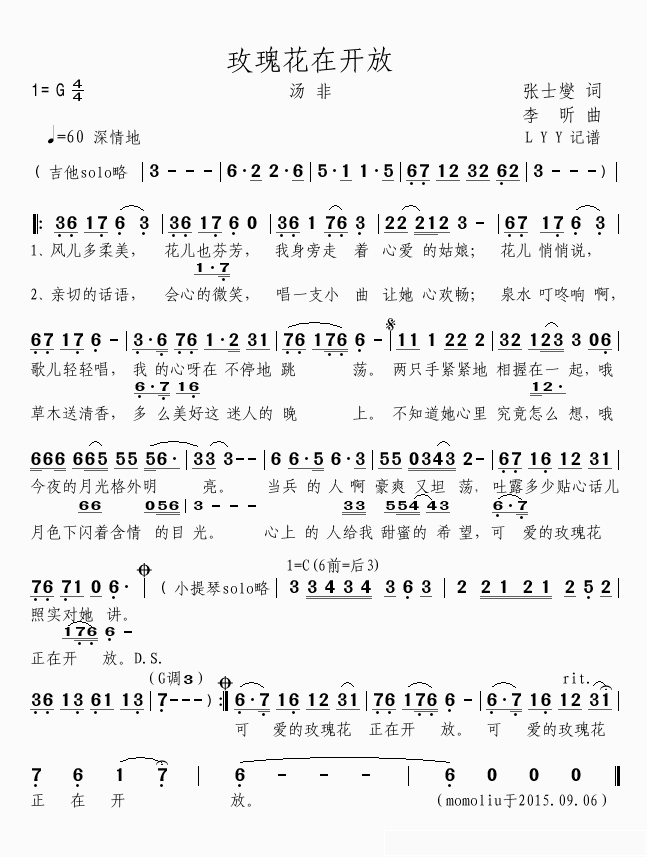 玫瑰花在开放
1=G 4/4 汤 非 张士燮 词
李 昕 曲
♩=60 深情地 LYY记谱
( 吉他solo略 |3 - - - |6·2 2·6 |5·1 1·5 |67 12 32 62 |3 - - - )|
‖: 36 17 6 3 |36 17 6 0 |36 1 76 3 |22 212 3 - |67 17 6 3 |
1、风儿多柔美, 花儿也芬芳, 我身旁走 着 心爱 的姑娘; 花儿 悄悄说,
1·7
2、亲切的话语, 会心的微笑, 唱一支小 曲 让她 心欢畅; 泉水 叮咚响 啊,
67 17 6 - |3·6 76 1·2 31 |76 176 6 - |11 1 22 2 |32 123 3 06 |
歌儿轻轻唱, 我 的心呀在 不停地 跳 荡。 两只手紧紧地 相握在一 起,哦
6·7 16 12·
草木送清香, 多 么美好这 迷人的 晚 上。 不知道她心里 究竟怎么 想,哦
666 665 55 56· |33 3-- |6 6·5 6·3 |55 0343 2- |67 16 12 31 |
今夜的月光格外明 亮。 当兵 的 人 啊 豪爽 又坦 荡, 吐露多少贴心话儿
66 056 3 - - - 33 554 43 6·7
月色下闪着含情 的目 光。 心上 的 人给我 甜蜜的 希 望, 可 爱的玫瑰花
1=C(6前=后3)
76 71 0 6· ( 小提琴solo略 |3 3 4 3 4 3 6 3 | 2 2 1 2 1 2 5 2 |
照实对她 讲。
176 6 -
正在开 放。D.S.
(G调3) rit.
36 13 61 13 |7--- ) :‖ 6·7 16 12 31 |76 176 6 - |6·7 16 12 31 |
可 爱的玫瑰花 正在开 放。 可 爱的玫瑰花
7 6 1 7 | 6 - - - | 6 0 0 0 ‖
正 在 开 放。 (momoliu于2015.09.06)